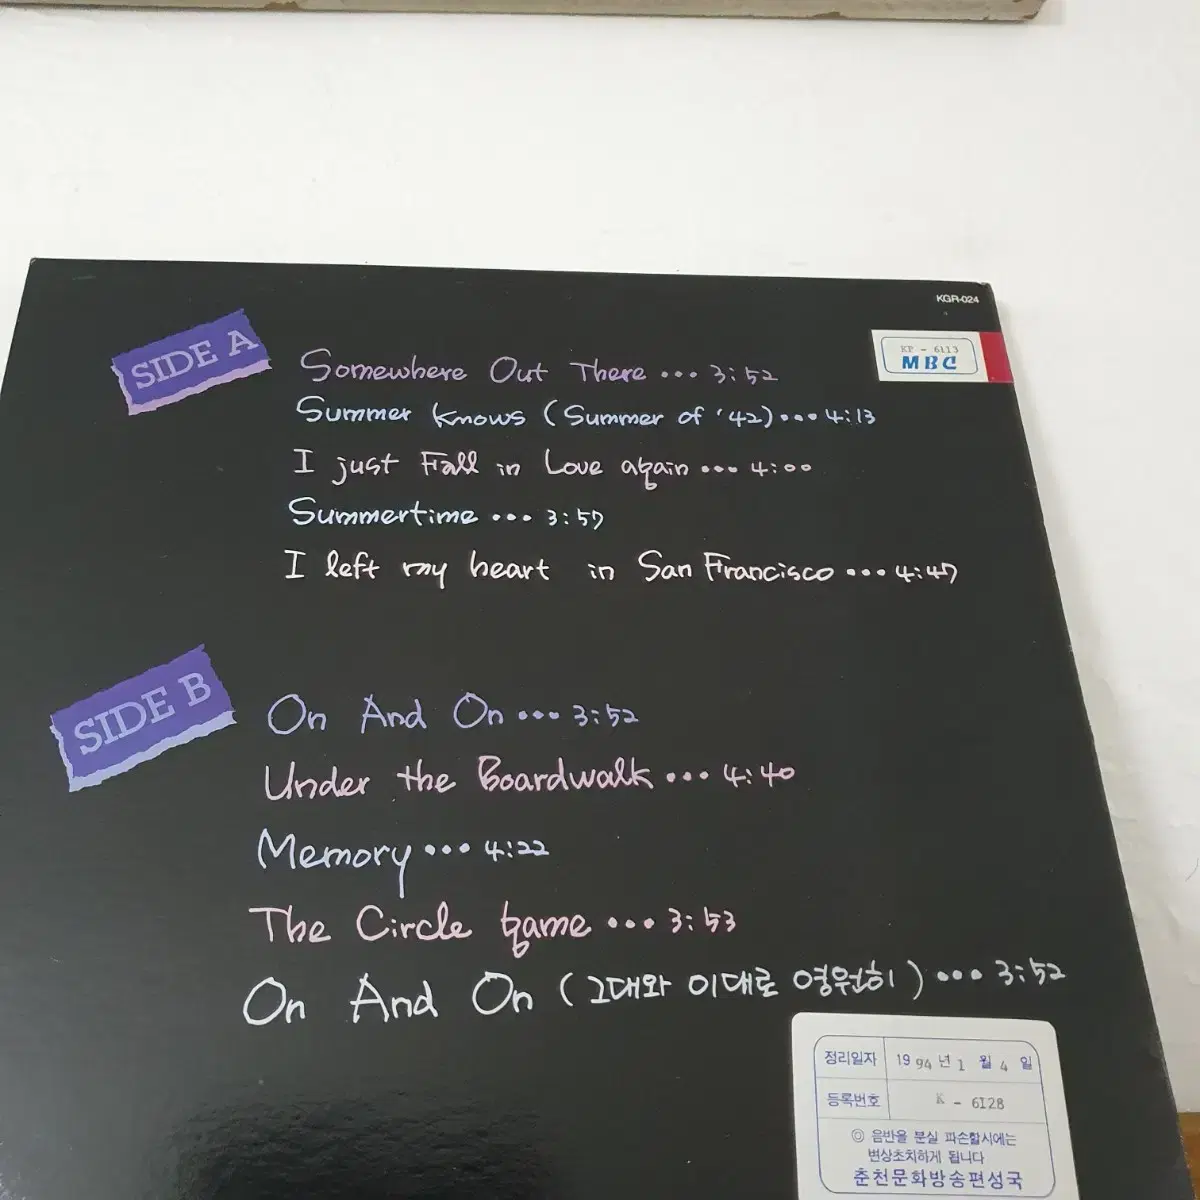 KGR-024
KP - 6113
MBC
SIDE A
Somewhere Out There ... 3:52
Summer Knows (Summer of '42) ... 4:13
I just Fall in Love again ... 4:00
Summertime ... 3:57
I left my heart in San Francisco ... 4:47
SIDE B
On And On ... 3:52
Under the Boardwalk ... 4:40
Memory ... 4:22
The Circle game ... 3:53
On And On (그대와 이대로 영원히) ... 3:52
정리일자 1994년 1월 4일
등록번호 K - 6128
◎ 음반을 분실 파손할시에는
변상조치하게 됩니다
춘천문화방송편성국